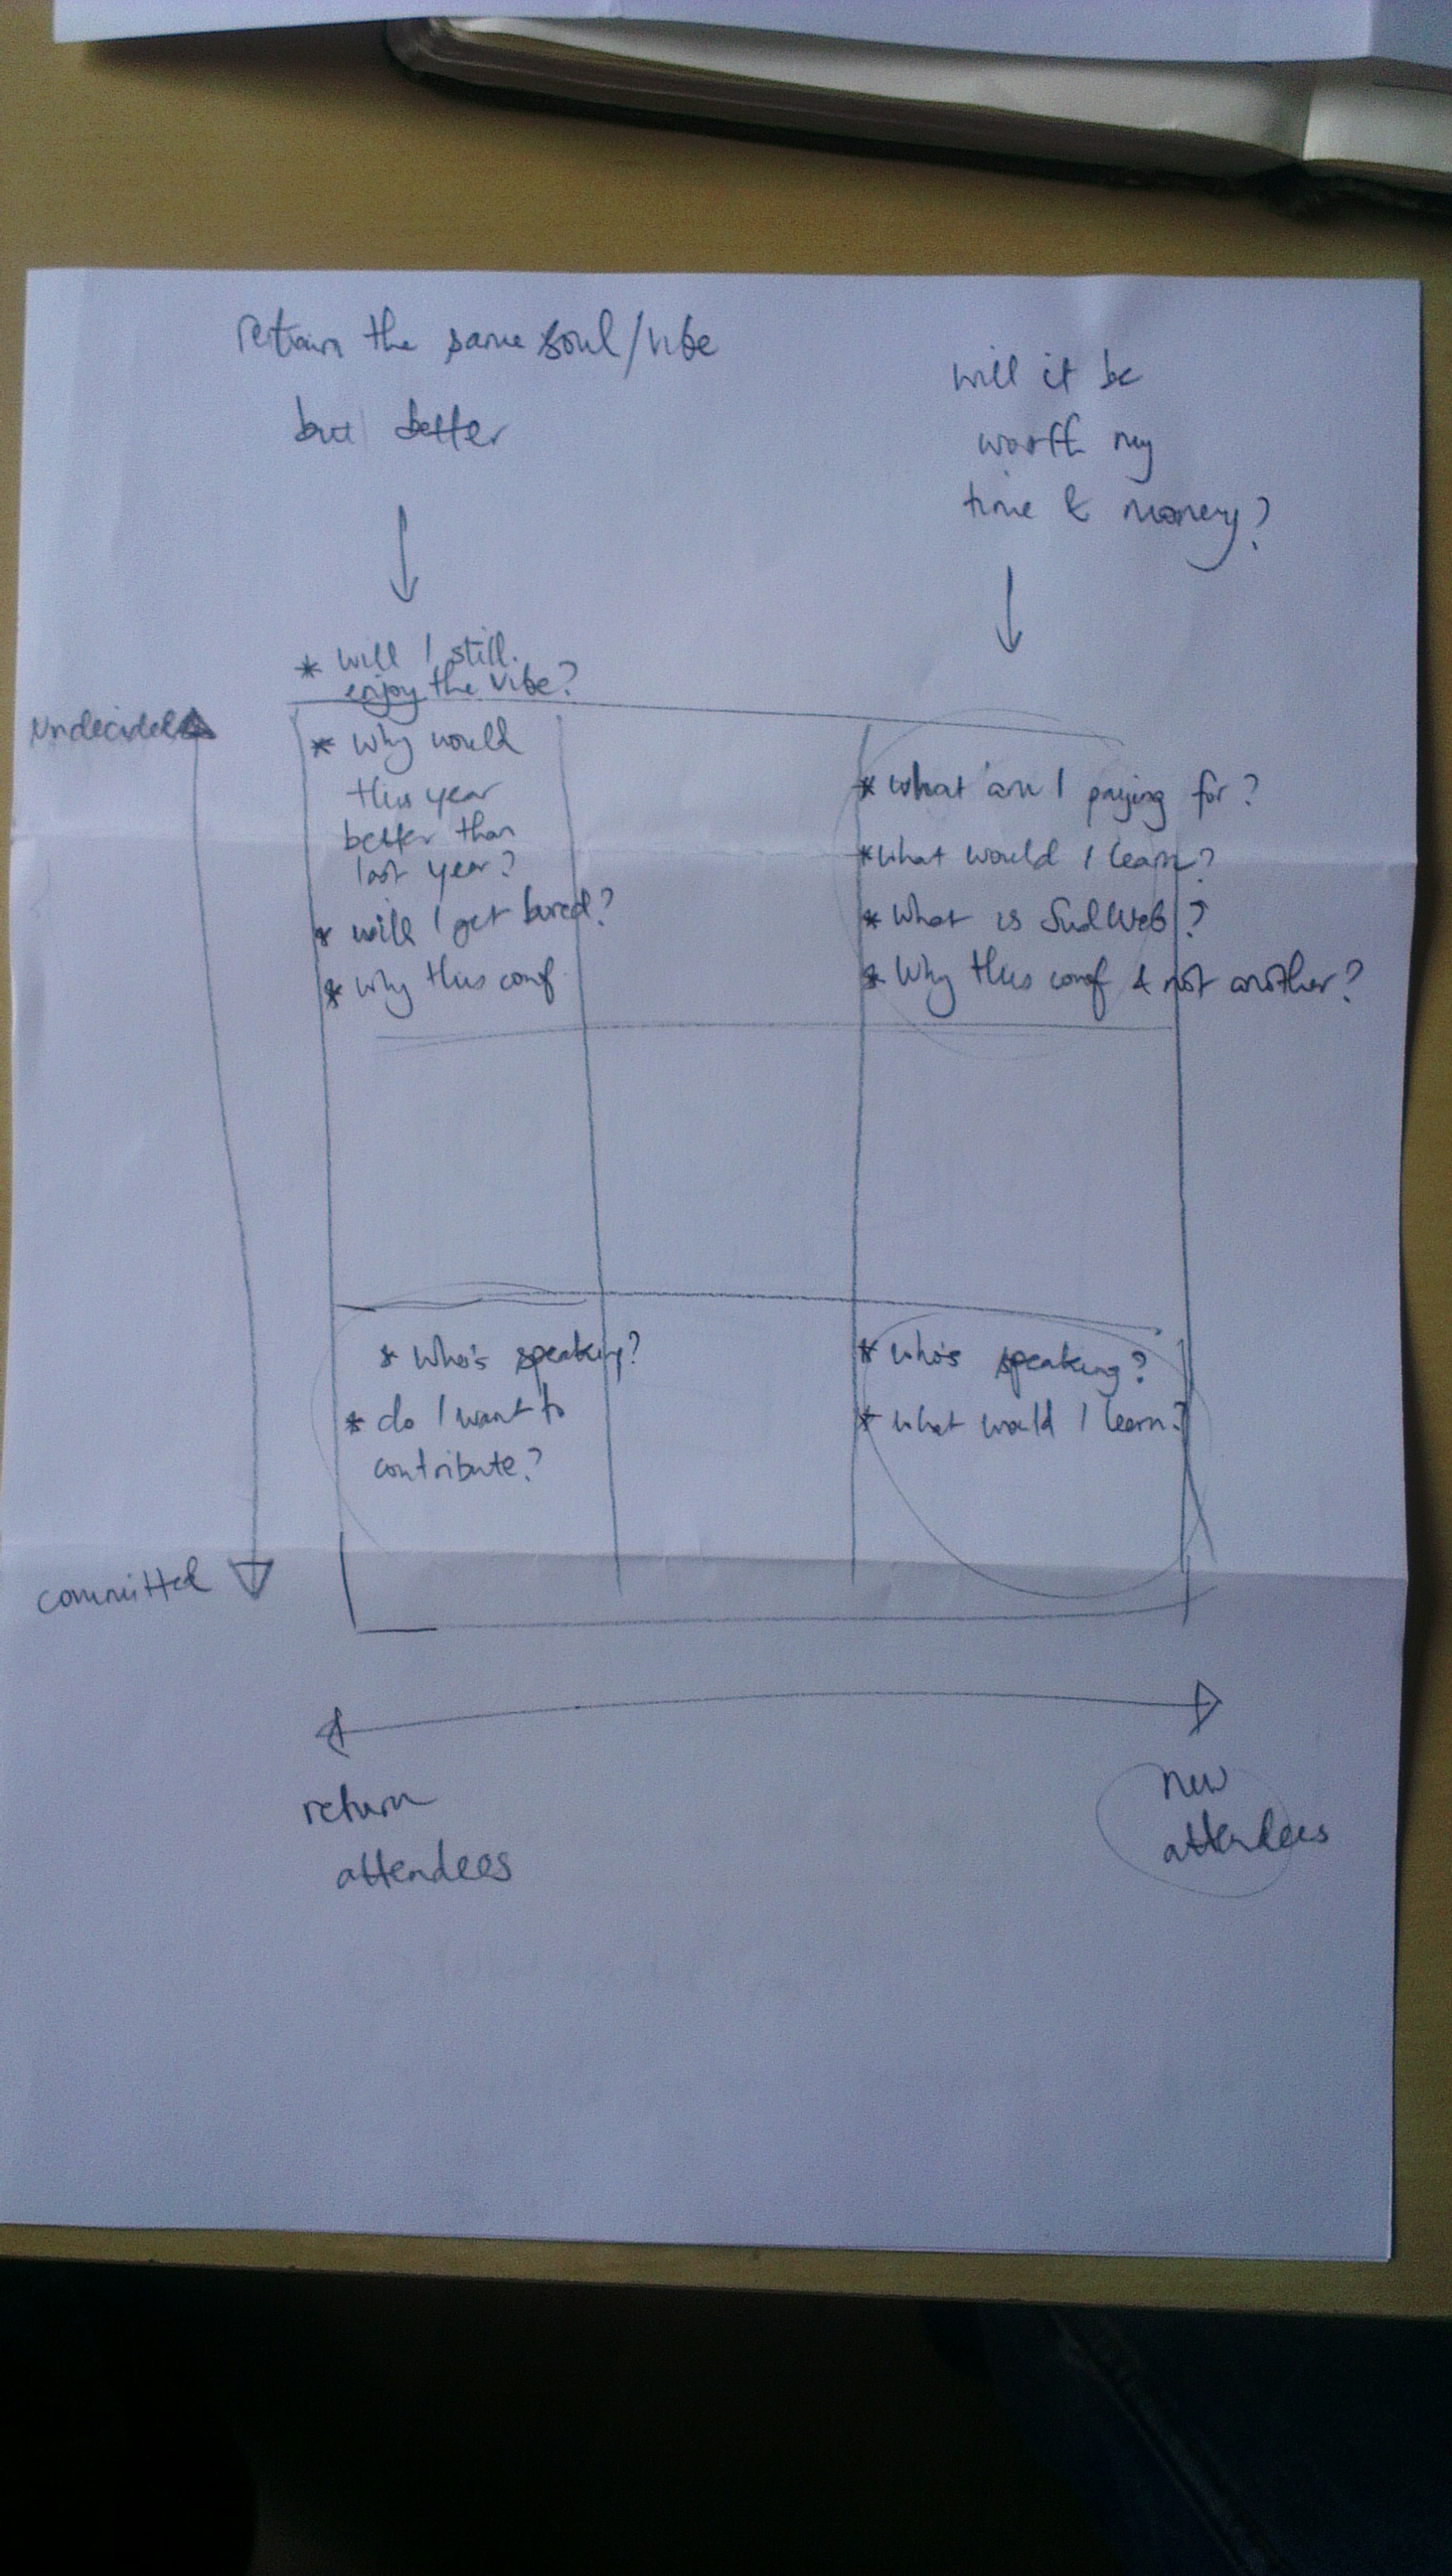 retain the same soul/vibe
but better
will it be
worth my
time & money?
* will I still
enjoy the vibe?
undecided
* why would
this year
better than
last year?
* will I get bored?
* why this conf
* what am I paying for?
* what would I learn?
* what is SudWeb?
* why this conf & not another?
* who's speaking?
* do I want to
contribute?
* who's speaking?
* what would I learn?
committed
return
attendees
new
attendees